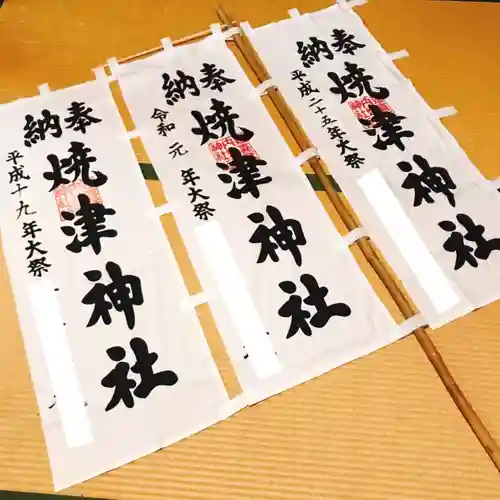 奉納
焼津神社
平成十九年大祭
奉納
焼津神社
令和元年大祭
奉納
焼津神社
平成二十五年大祭